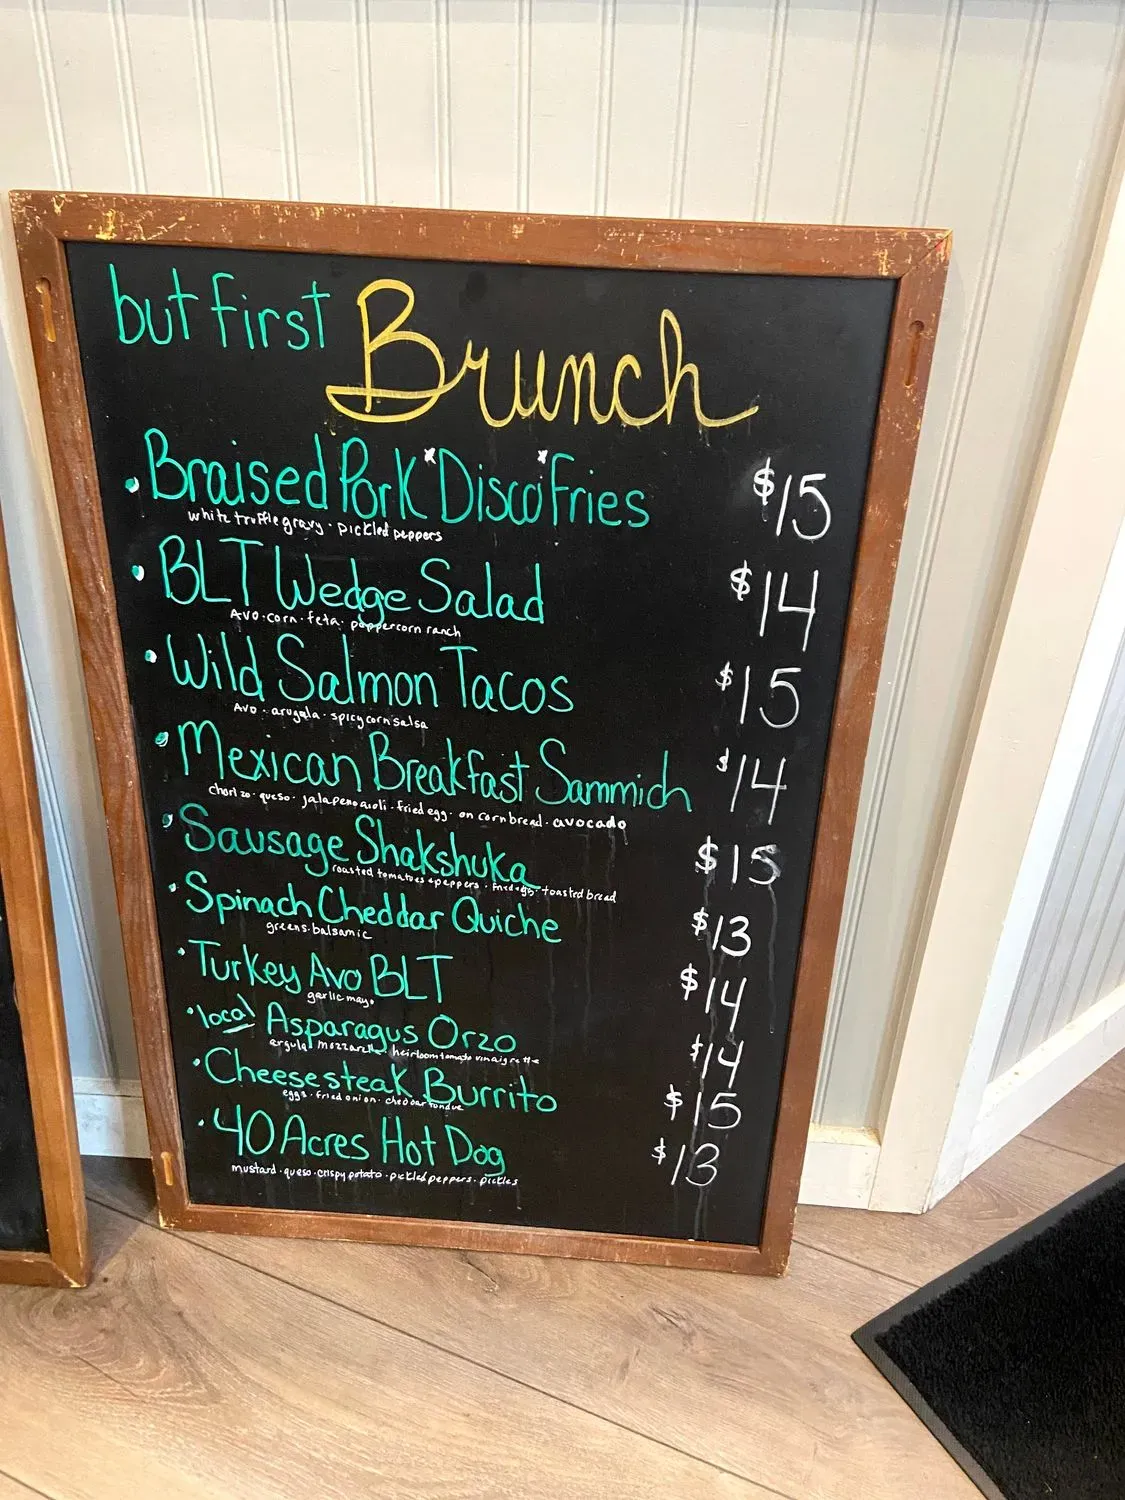 but first Brunch
• Braised Pork "Disco" Fries $15
white truffle gravy · pickled peppers
• BLT Wedge Salad $14
Avo · corn · feta · peppercorn ranch
• Wild Salmon Tacos $15
Avo · arugala · spicy corn salsa
• Mexican Breakfast Sammich $14
chorizo · queso · jalapeno aioli · fried egg · on corn bread · avocado
• Sausage Shakshuka $15
roasted tomatoes & peppers · fried egg · toasted bread
• Spinach Cheddar Quiche $13
greens · balsamic
• Turkey Avo BLT $14
garlic mayo
• local Asparagus Orzo $14
argula mozzarella heirloom tomato vinaigrette
• Cheesesteak Burrito $15
eggs · fried onion · cheddar fondue
• 40 Acres Hot Dog $13
mustard · queso · crispy potato · pickled peppers · pickles